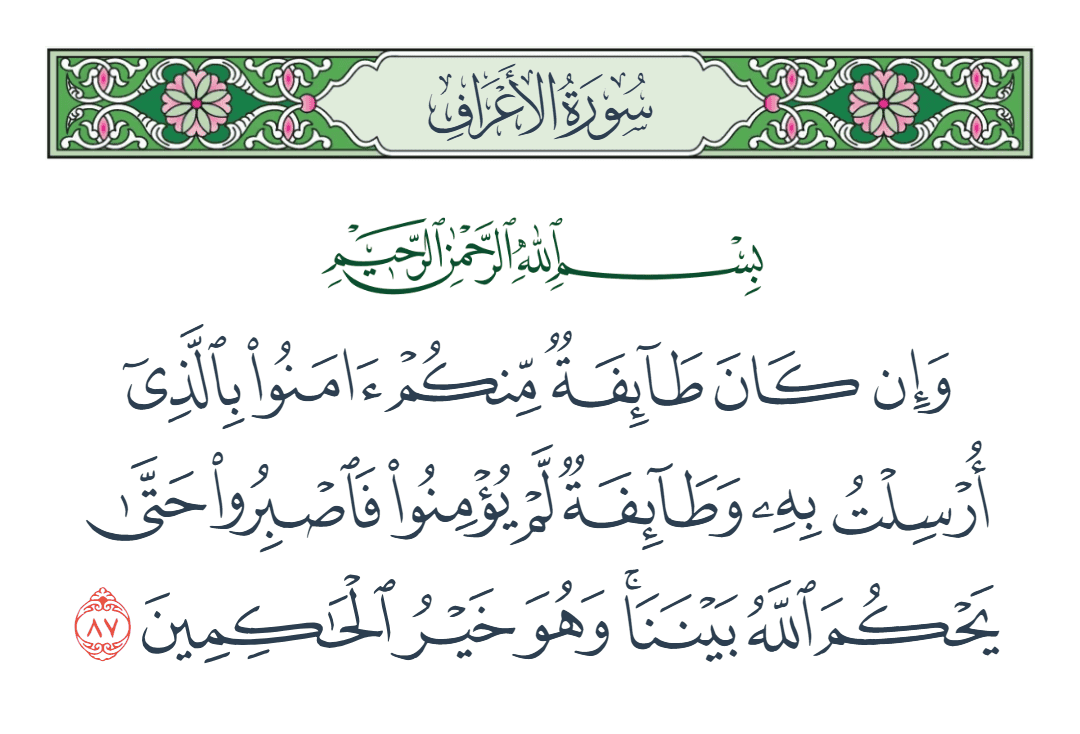 سُورَةُ الأَعْرَافِ
بِسْمِ ٱللَّهِ ٱلرَّحْمَٰنِ ٱلرَّحِيمِ
وَإِن كَانَ طَآئِفَةٌ مِّنكُمْ ءَامَنُوا۟ بِٱلَّذِىٓ
أُرْسِلْتُ بِهِۦ وَطَآئِفَةٌ لَّمْ يُؤْمِنُوا۟ فَٱصْبِرُوا۟ حَتَّىٰ
يَحْكُمَ ٱللَّهُ بَيْنَنَا ۚ وَهُوَ خَيْرُ ٱلْحَٰكِمِينَ ٨٧